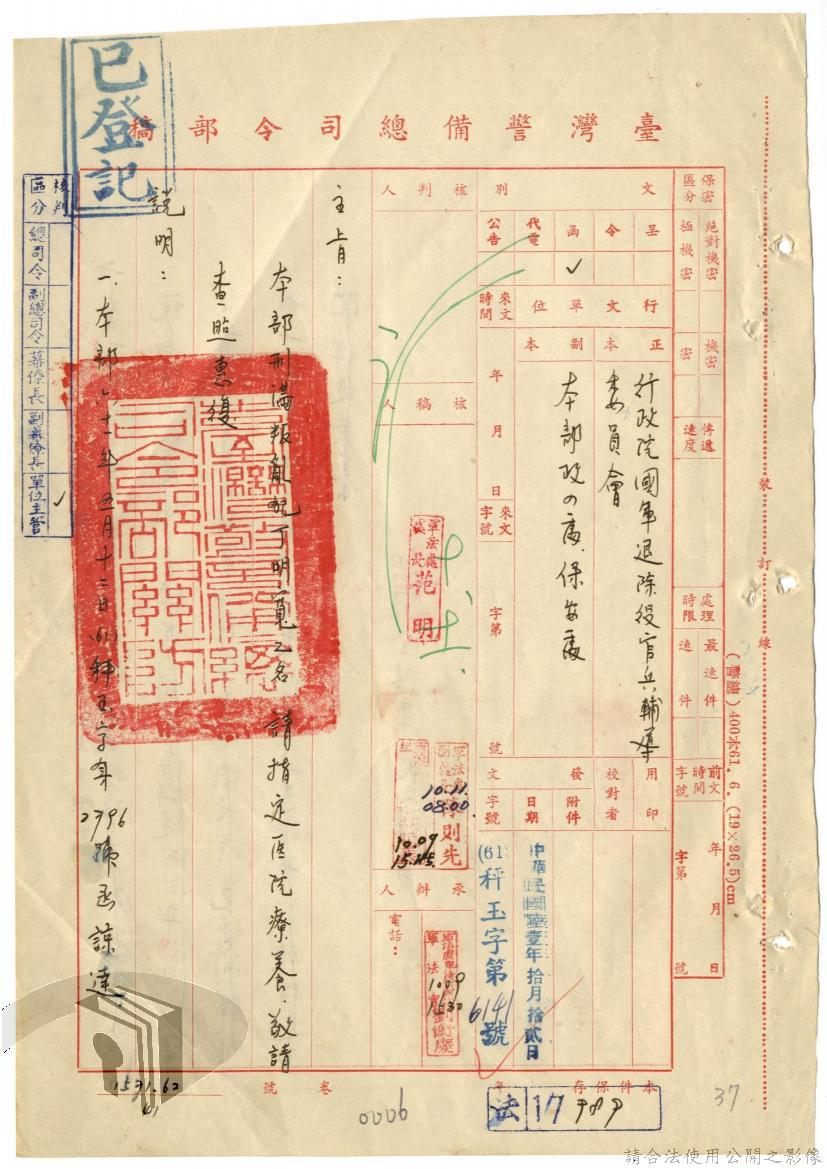 已登記
臺灣警備總司令部稿
保密區分
絕對機密
極機密
機密
密
傳遞速度
處理時限
最速件
速件
前文時間字號
年月日
字第號
文別
呈
令
函
代電
公告
✓
行文單位
正本
副本
行政院國軍退除役官兵輔導
委員會
本部政四處、保安處
來文時間
年月日
來文字號
字第號
用印
校對者
發文
附件
日期
字號
中華民國陸壹年拾月拾貳日
(61)秤玉字第6141號
核判人
核稿人
軍法處處長范明
10.11.
08.00
則先
10.09
15.45
承辦人
電話：
軍法
1009
1530
主旨：
本部刑滿叛亂犯丁明寬乙名，請指定醫院療養，敬請
查照惠復
說明：
一、本部六十一年五月十二日(61)秤玉字第
2796
號函諒達，
核判區分
總司令
副總司令
幕僚長
副幕僚長
單位主管
✓
裝訂線
400本61.6.(19×26.5)cm
本件保存年
法 17
卷號
1571.62
0006
37
請合法使用公開之影像